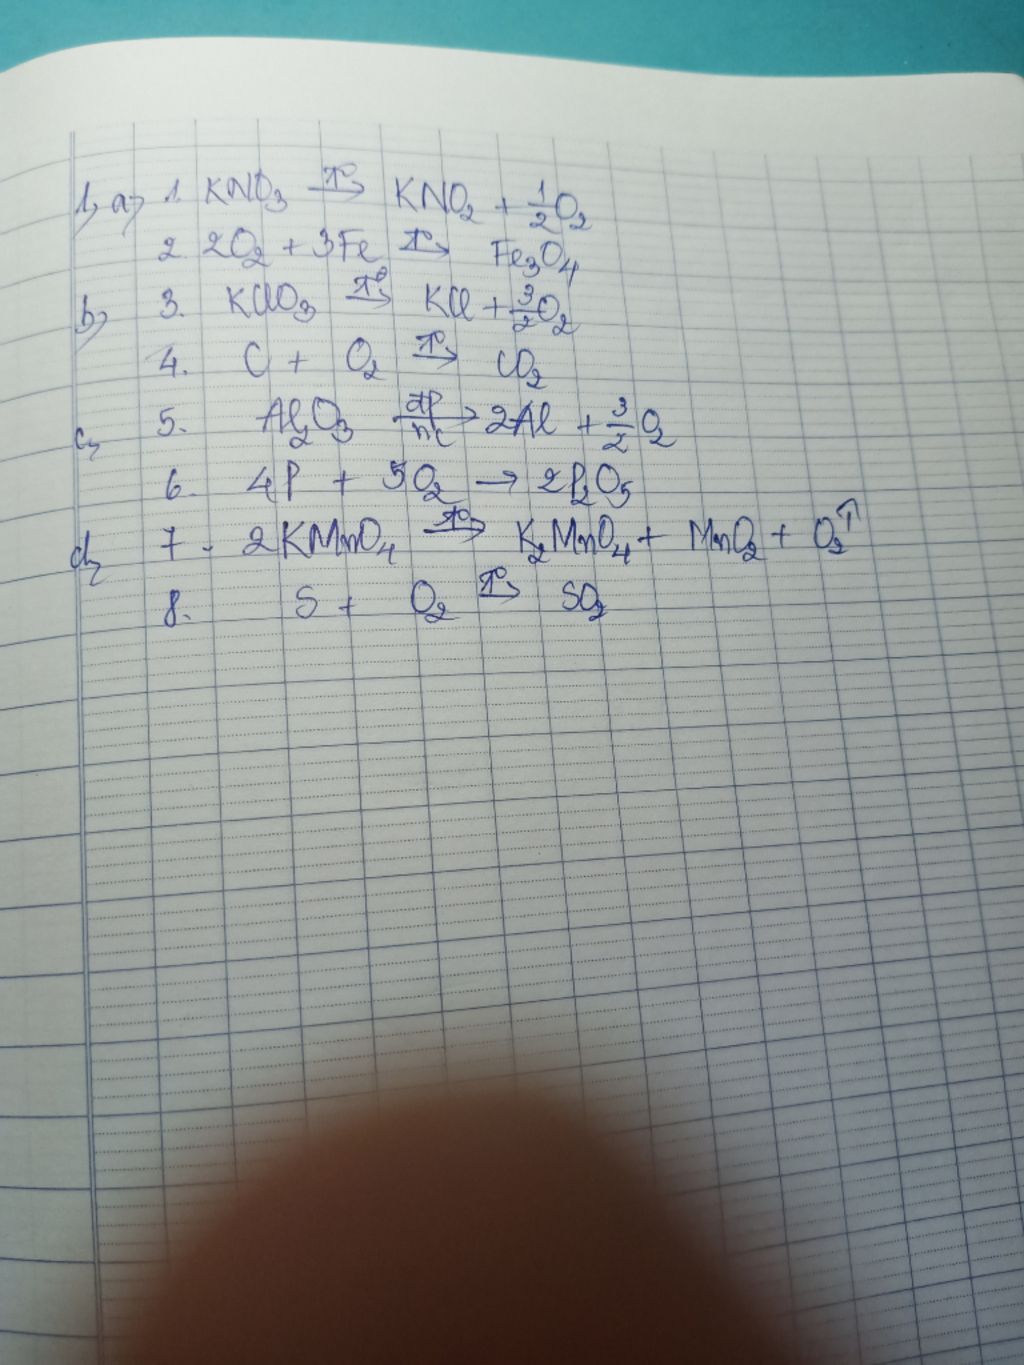 1, a, 1. KNO₃ →(T°) KNO₂ + 1/2 O₂
2. 2O₂ + 3Fe →(T°) Fe₃O₄
b, 3. KClO₃ →(T°) KCl + 3/2 O₂
4. C + O₂ →(T°) CO₂
c, 5. Al₂O₃ →(đp/nc) 2Al + 3/2 O₂
6. 4P + 5O₂ → 2P₂O₅
d, 7. 2KMnO₄ →(T°) K₂MnO₄ + MnO₂ + O₂↑
8. S + O₂ →(T°) SO₂